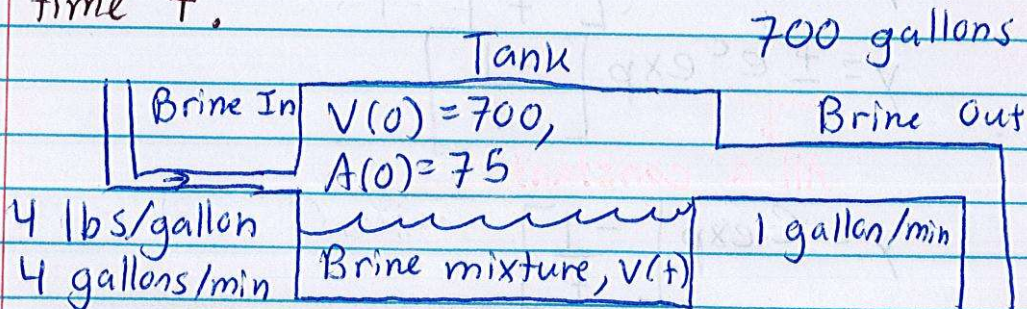 time t.
700 gallons
Tank
Brine In
V(0) = 700,
A(0) = 75
Brine Out
4 lbs/gallon
4 gallons/min
Brine mixture, V(t)
1 gallon/min